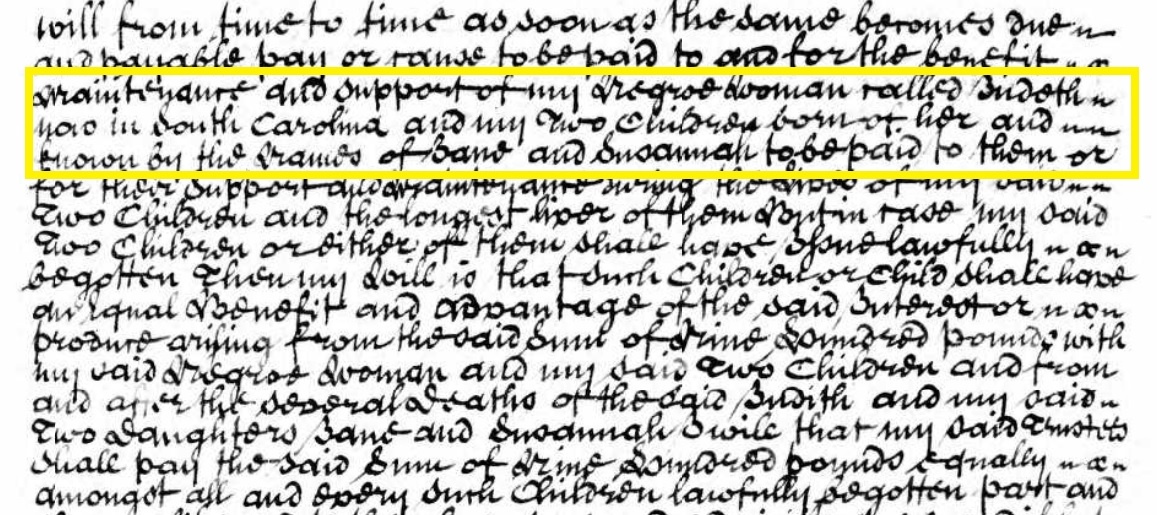 will from time to time as soon as the same becomes due
and payable pay or cause to be paid to and for the benefit
Maintenance and Support of my Negroe Woman called Judeth
now in South Carolina and my Two Children born of her and
known by the Names of Jane and Susannah to be paid to them or
for their Support and Maintenance during the Lives of my said
Two Children and the longest liver of them But in case my said
Two Children or either of them shall have Issue lawfully
begotten Then my Will is that such Children or Child shall have
an Equal Benefit and Advantage of the said Interest or
produce arising from the said Sum of Nine Hundred pounds with
my said Negroe Woman and my said Two Children and from
and after the several Deaths of the said Judith and my said
Two Daughters Jane and Susannah I will that my said Trustees
shall pay the said Sum of Nine Hundred pounds equally
amongst all and every such Children lawfully begotten part and